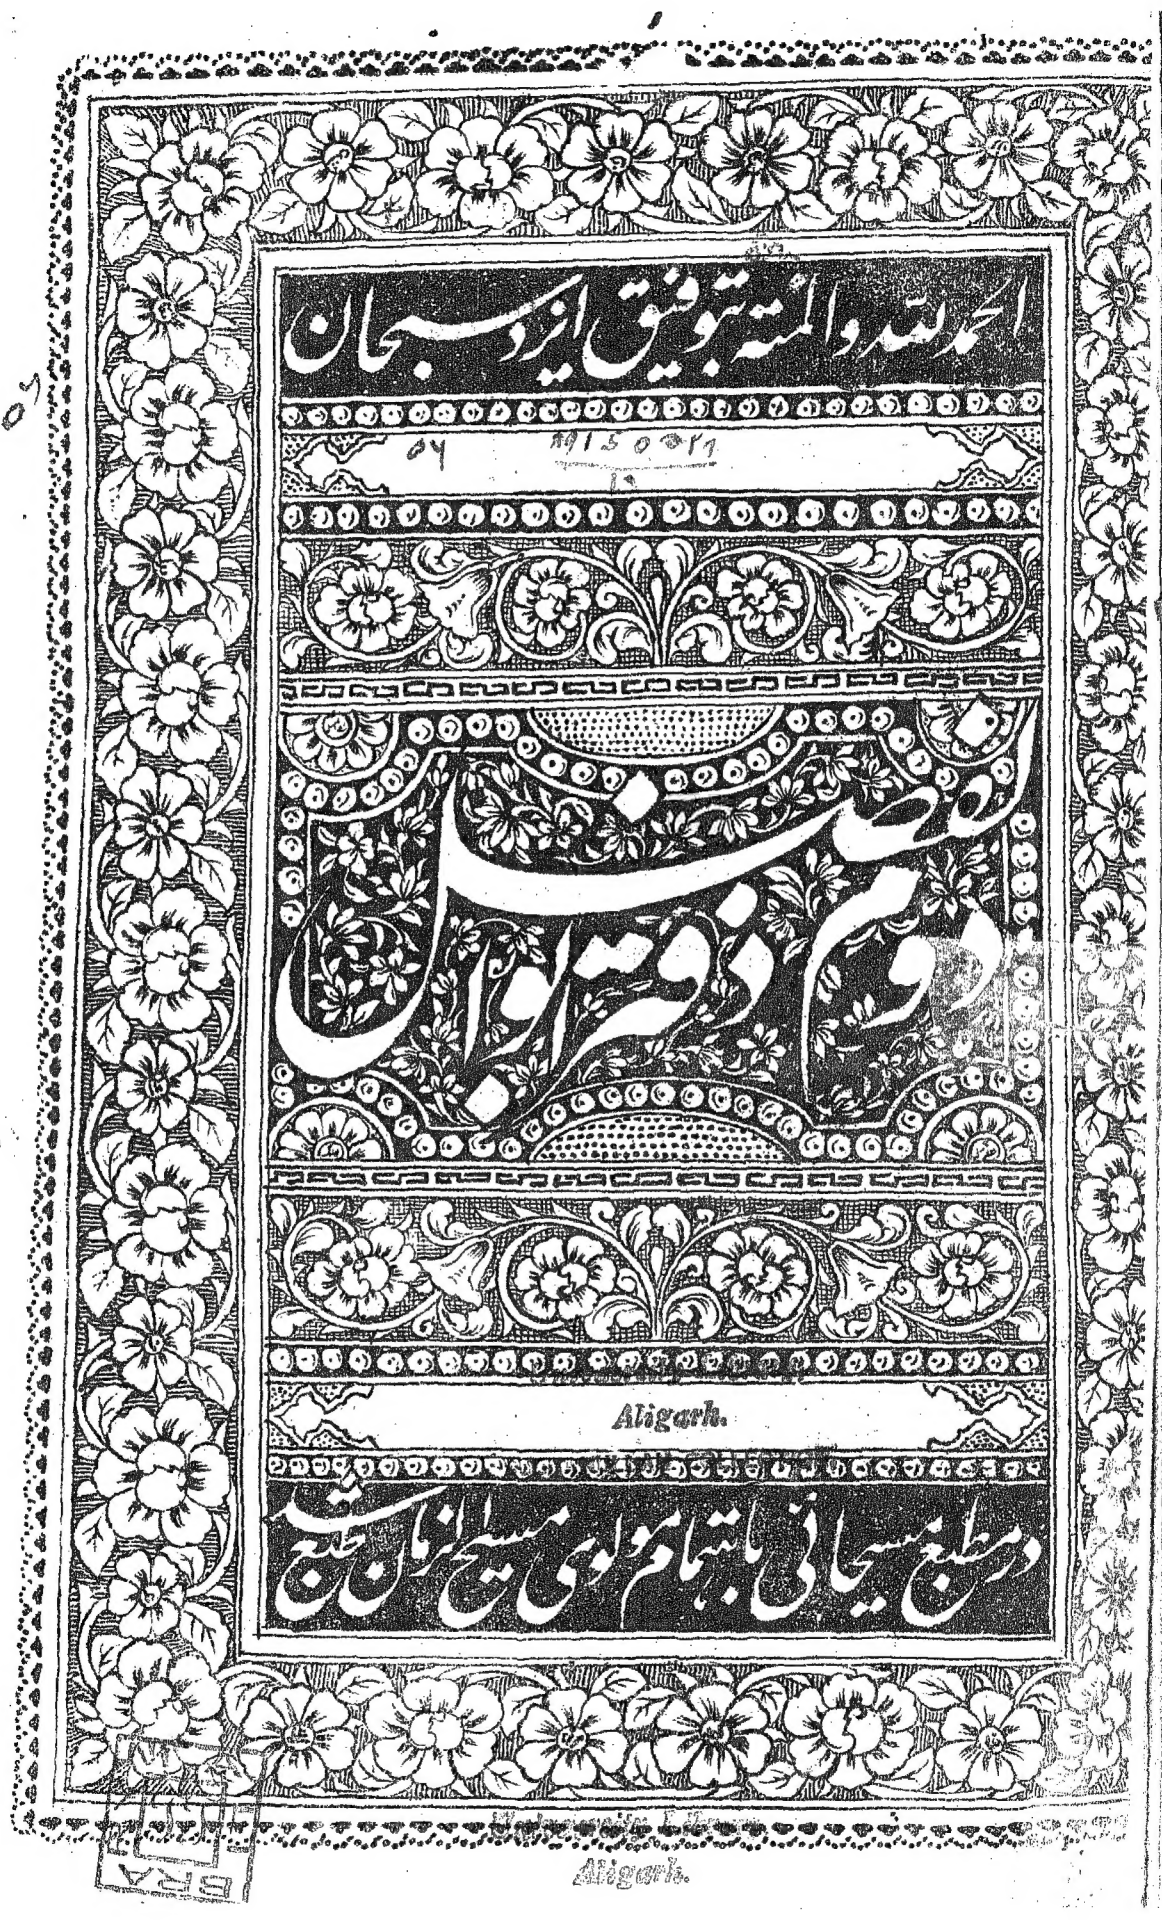 الحمد لله والمنه بتوفیق ایزد سبحان
دفتر دوم ابوالفضل
Aligarh.
در مطبع مسیحائی باهتمام مولوی مسیح الزمان طبع شد
Aligarh.